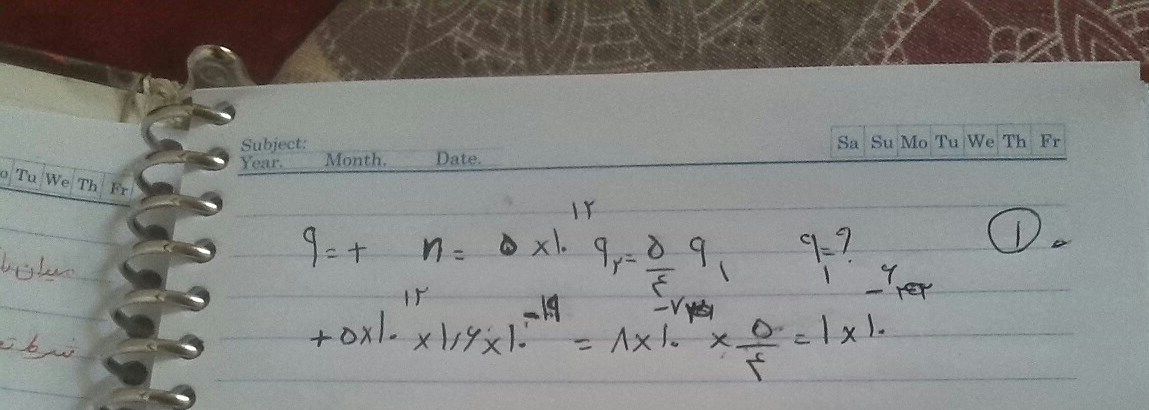 Subject:
Year. Month. Date.
Sa Su Mo Tu We Th Fr
o Tu We Th Fr
q=+ n= ۵×۱۰^۱۲ q۲=۵/۴ q۱ q۱=? ①
+۵×۱۰^۱۲ ×۱٫۶×۱۰^-۱۹ = ۸×۱۰^-۷ × ۵/۴ = ۱×۱۰^-۶